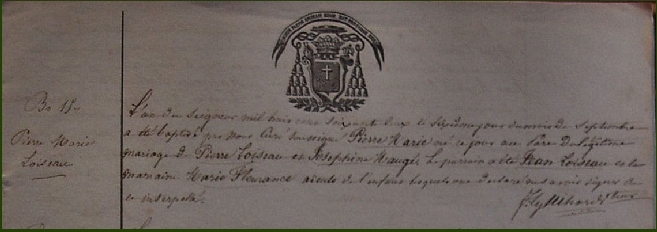 Bo 15
Pierre Marie
Loiseau
L'an du Seigneur mil huit cent soixante deux le septième jour du mois de Septembre
a été baptisé par Nous Curé soussigné Pierre Marie né ce jour au Père de légitime
mariage de Pierre Loiseau et Josephine Maugé. Le parrain a été Jean Loiseau et la
marraine Marie Fleurance aieuls de l'enfant lesquels ont declaré ne savoir signer de
ce interpelés.